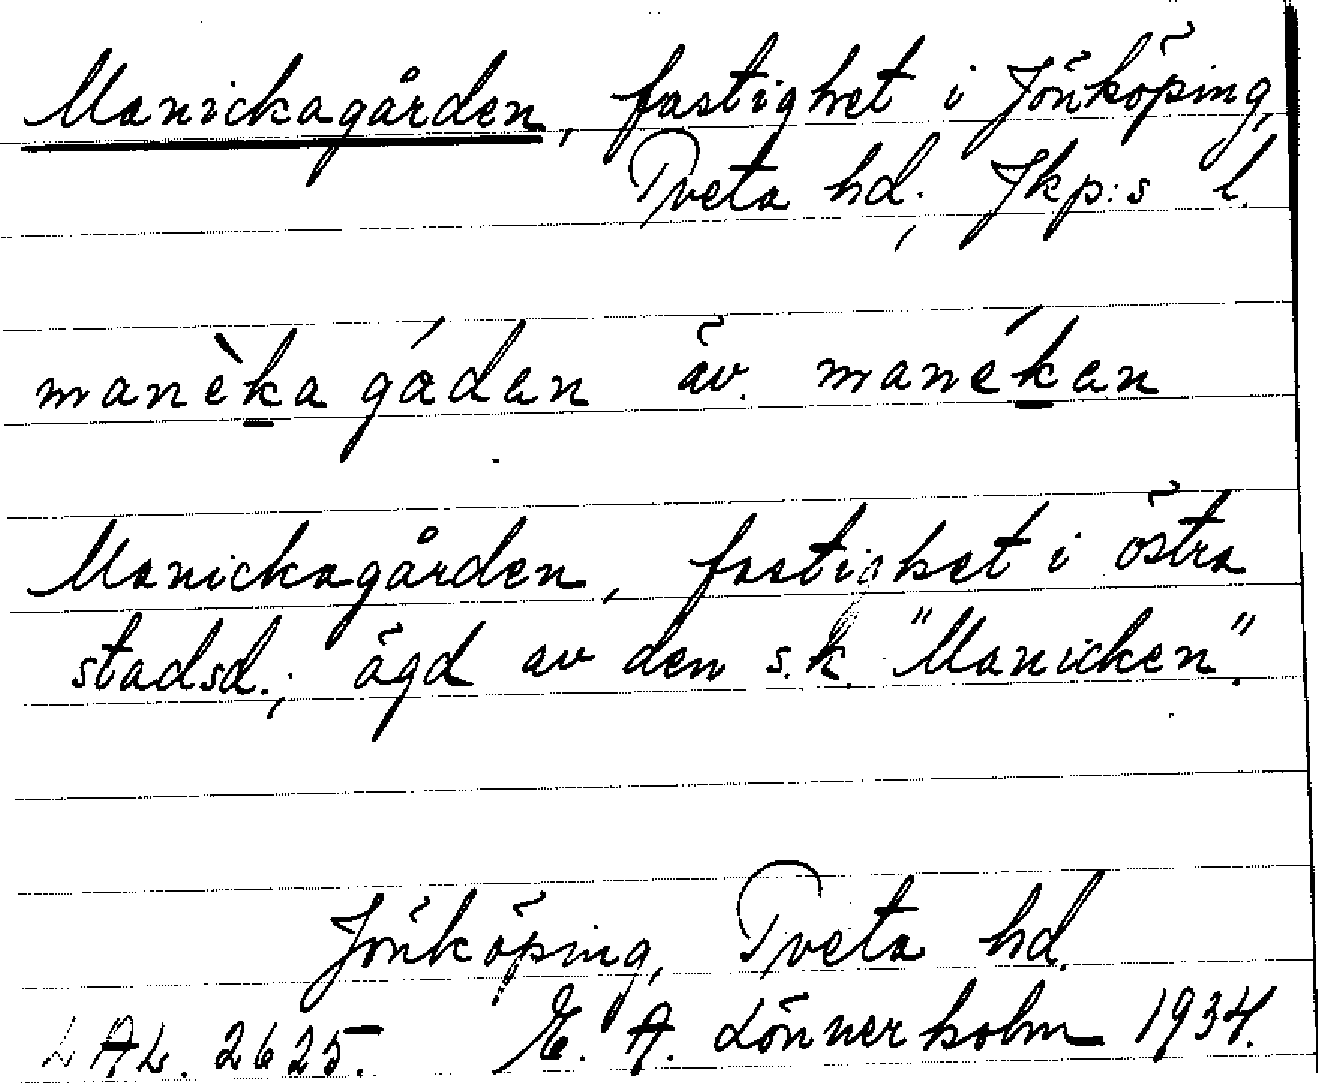 Manickagården, fastighet i Jönköping,
Tveta hd., Jkp:s l.
manèka gáden äv. manékan
Manickagården, fastighet i östra
stadsd.; ägd av den s.k. "Manicken".
Jönköping, Tveta hd.
LAL. 2625. E. A. Lönnerholm 1934.